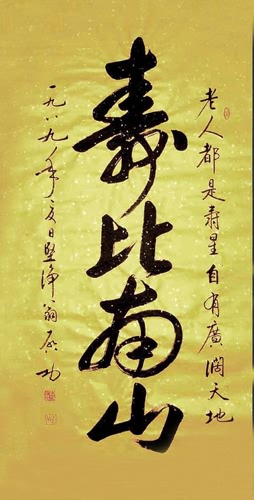 老人都是寿星自有廣闊天地
寿比南山
一九八九年夏日堅淨翁启功